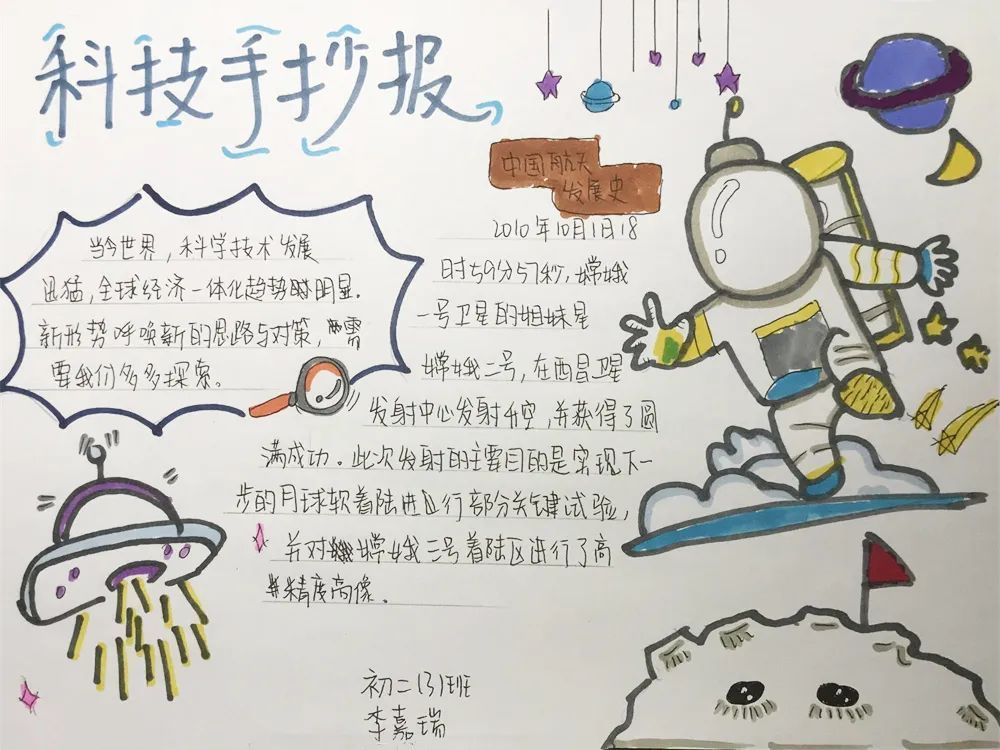 科技手抄报
中国航天
发展史
当今世界，科学技术发展
迅猛，全球经济一体化趋势时明显.
新形势呼唤新的思路与对策，需
要我们多多探索。
2010年10月1日18
时59分57秒，嫦娥
一号卫星的姐妹星
嫦娥二号，在西昌卫星
发射中心发射升空，并获得了圆
满成功。此次发射的主要目的是实现下一
步的月球软着陆进行部分关键试验，
并对嫦娥三号着陆区进行了高
精度高像。
初二（3）班
李嘉瑞